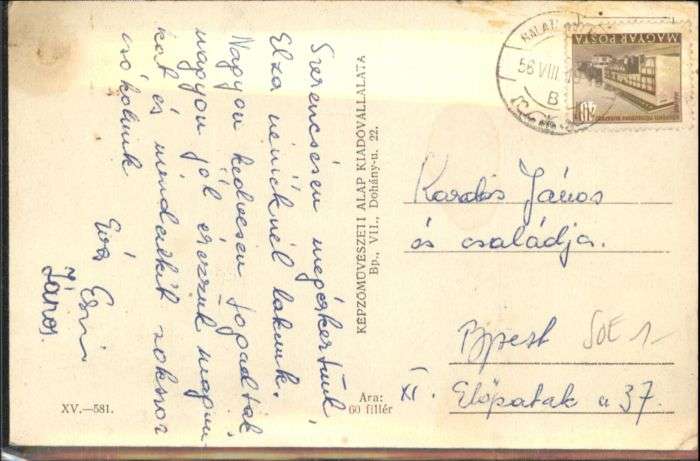 Szerencsésen megérkeztünk,
Elza néniéknél lakunk.
Nagyon kedvesen fogadtak
nagyon jól érezzük magun-
kat és mindenkit sokszor
csókolunk
Éva
János.
KÉPZŐMŰVÉSZETI ALAP KIADÓVÁLLALATA
Bp., VII., Dohány-u. 22.
XV.—581.
Ára:
60 fillér
56 VIII
B
MAGYAR POSTA
Kardos János
és családja.
Bpest
SOE 1-
XI. Előpatak u 37.